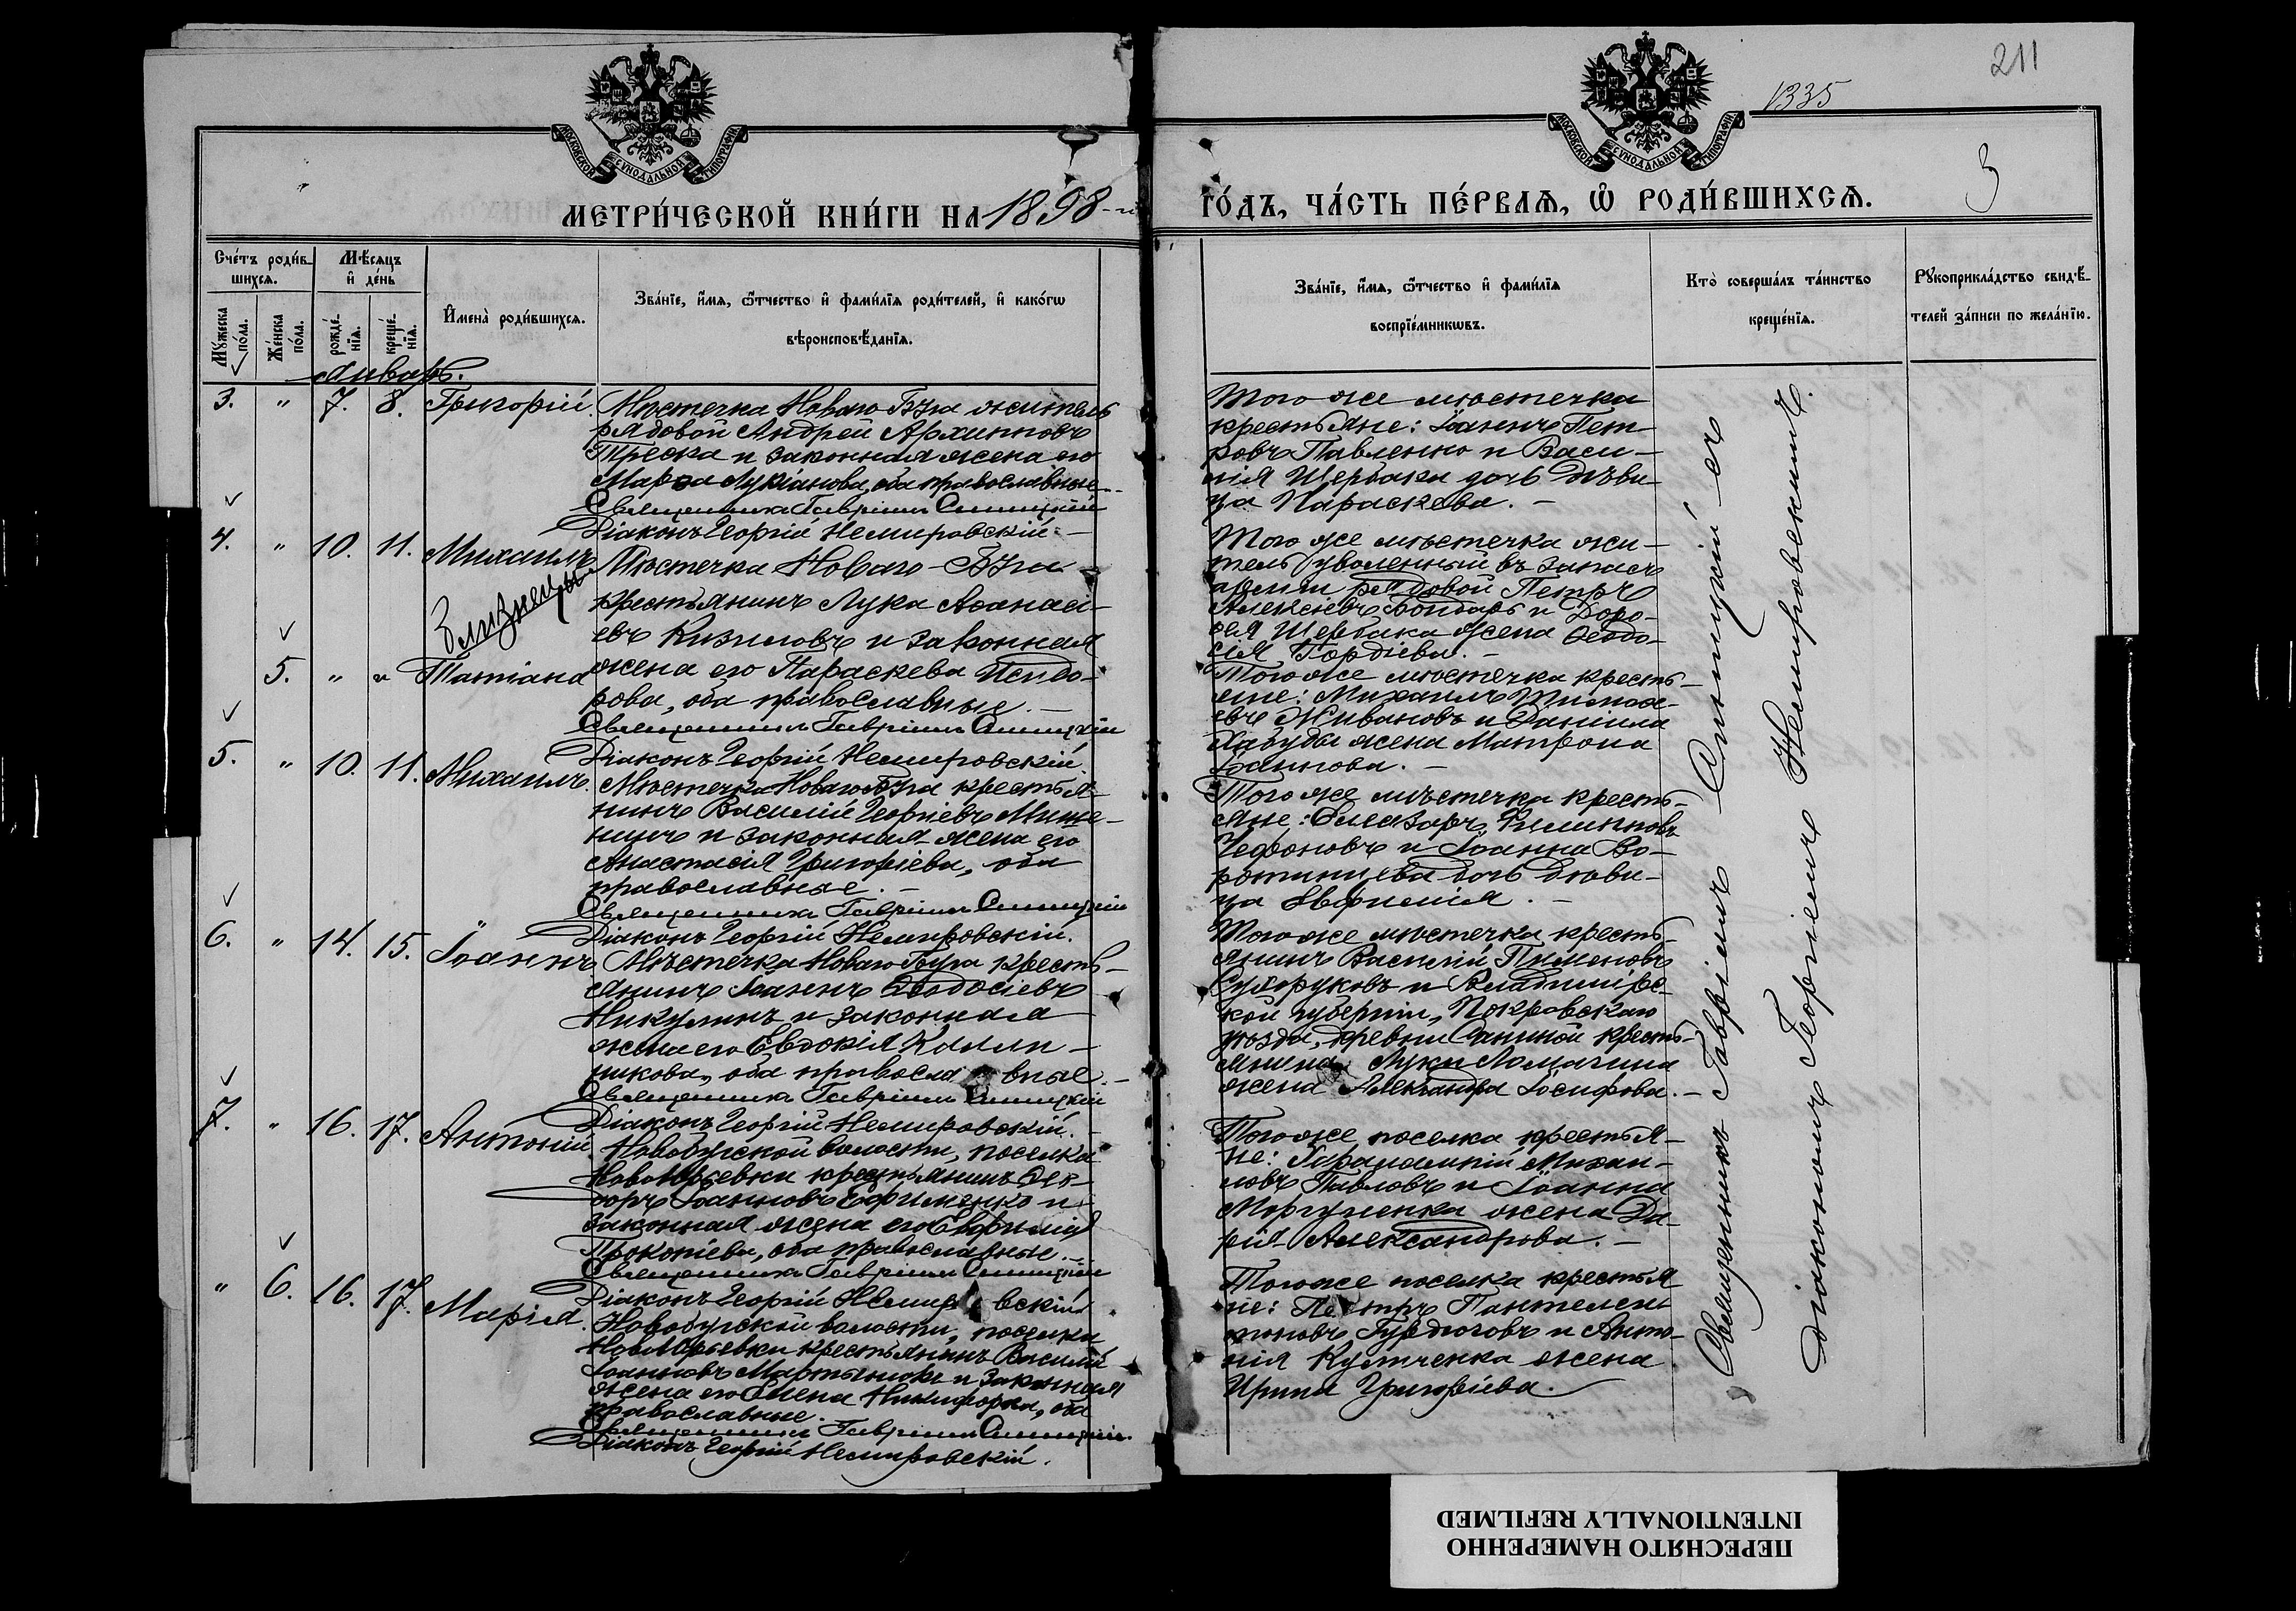 211
1335
3
МОСКОВСКОЙ СѴНОДАЛЬНОЙ ТИПОГРАФІИ
МОСКОВСКОЙ СѴНОДАЛЬНОЙ ТИПОГРАФІИ
МЕТРИ́ЧЕСКОЙ КНИ́ГИ НА 1898-й
ГО́ДЪ, ЧА́СТЬ ПЕ́РВАѦ, Ѽ РОДИ́ВШИХСѦ.
Сче́тъ роди́в-
шихсѧ.
Мꙋ́жеска по́ла.
Же́нска по́ла.
Мѣ́сѧцъ и҆ де́нь
рожде́-
нїѧ.
креще́-
нїѧ.
И҆мена̀ роди́вшихсѧ.
Зва́нїе, и҆́мѧ, ѻ҆́тчество и҆ фами́лїѧ роди́телей, и҆ како́гѡ
вѣроисповѣ́данїѧ.
Зва́нїе, и҆́мѧ, ѻ҆́тчество и҆ фами́лїѧ
воспрїе́мникѡвъ.
Кто̀ соверша́лъ та́инство
креще́нїѧ.
Рꙋкоприкла́дство свидѣ́-
телей за́писи по жела́нїю.
Январь.
3. " 7. 8. Григорій.
Мѣстечка Новаго Буга житель
рядовой Андрей Архипповъ
Треска и законная жена его
Марѳа Лукіанова, оба православные.
Священникъ Гавріилъ Синицкій
Діаконъ Георгій Немировскій.
Того же мѣстечка
крестьяне: Іоаннъ Пет-
ровъ Павленко и Васи-
лія Щербака дочь дѣви-
ца Параскева.
4. " 10. 11. Михаилъ
близнецы
5. " " Татіана
Мѣстечка Новаго-Буга
крестьянинъ Лука Аѳанась-
евъ Кизиловъ и законная
жена его Параскева Исидо-
рова, оба православные.
Священникъ Гавріилъ Синицкій
Діаконъ Георгій Немировскій.
Того же мѣстечка жи-
тель уволенный въ запасъ
арміи рядовой Петръ
Алексіевъ Бондарь и Доро-
ѳея Щербака жена Ѳеодо-
сія Гордіева.
Того же мѣстечка кресть-
яне: Михаилъ Тимоѳе-
евъ Живановъ и Даніила
жена Матрона
Іоаннова.
5. " 10. 11. Михаилъ.
Мѣстечка Новаго Буга крестья-
нинъ Василій Георгіевъ Мише-
нинъ и законная жена его
Анастасія Григоріева, оба
православные.
Священникъ Гавріилъ Синицкій
Діаконъ Георгій Немировскій.
Того же мѣстечка кресть-
яне: Елеазаръ Филипповъ
и Іоанна Во-
ротынцева дочь дѣви-
ца Евфимія.
6. " 14. 15. Іоаннъ
Мѣстечка Новаго Буга кресть-
янинъ Іоаннъ Ѳеодосіевъ
Никулинъ и законная
жена его Евдокія Калли-
никова, оба православные.
Священникъ Гавріилъ Синицкій
Діаконъ Георгій Немировскій.
Того же мѣстечка кресть-
янинъ Василій Пименовъ
Сухоруковъ и Владимірс-
кой губерніи, Покровскаго
уѣзда, деревни крестъ-
янина Луки Ломагина
жена Александра Іосифова.
7. " 16. 17. Антоній.
Новобугской волости, поселка
крестьянинъ Ѳео-
доръ Іоанновъ Ефименко и
законная жена его Евфимія
Прокопіева, оба православные.
Священникъ Гавріилъ Синицкій
Діаконъ Георгій Немировскій.
Того же поселка крестья-
не: Харалампій Михаи-
ловъ Павловъ и Іоанна
Моргуненка жена Да-
рія Александрова.
" 6. 16. 17. Марія.
Новобугской волости, поселка
крестьянинъ Василій
Іоанновъ Мартыновъ и законная
жена его Елена Никифорова, оба
православные.
Священникъ Гавріилъ Синицкій.
Діаконъ Георгій Немировскій.
Того же поселка крестья
не: Петръ Пантелеи-
моновъ Гурдюговъ и Анто-
нія Культченка жена
Ирина Григоріева.
Священникъ Гавріилъ Синицкій съ
діакономъ Георгіемъ Немировскимъ.
ПЕРЕСНЯТО НАМЕРЕННО
INTENTIONALLY REFILMED